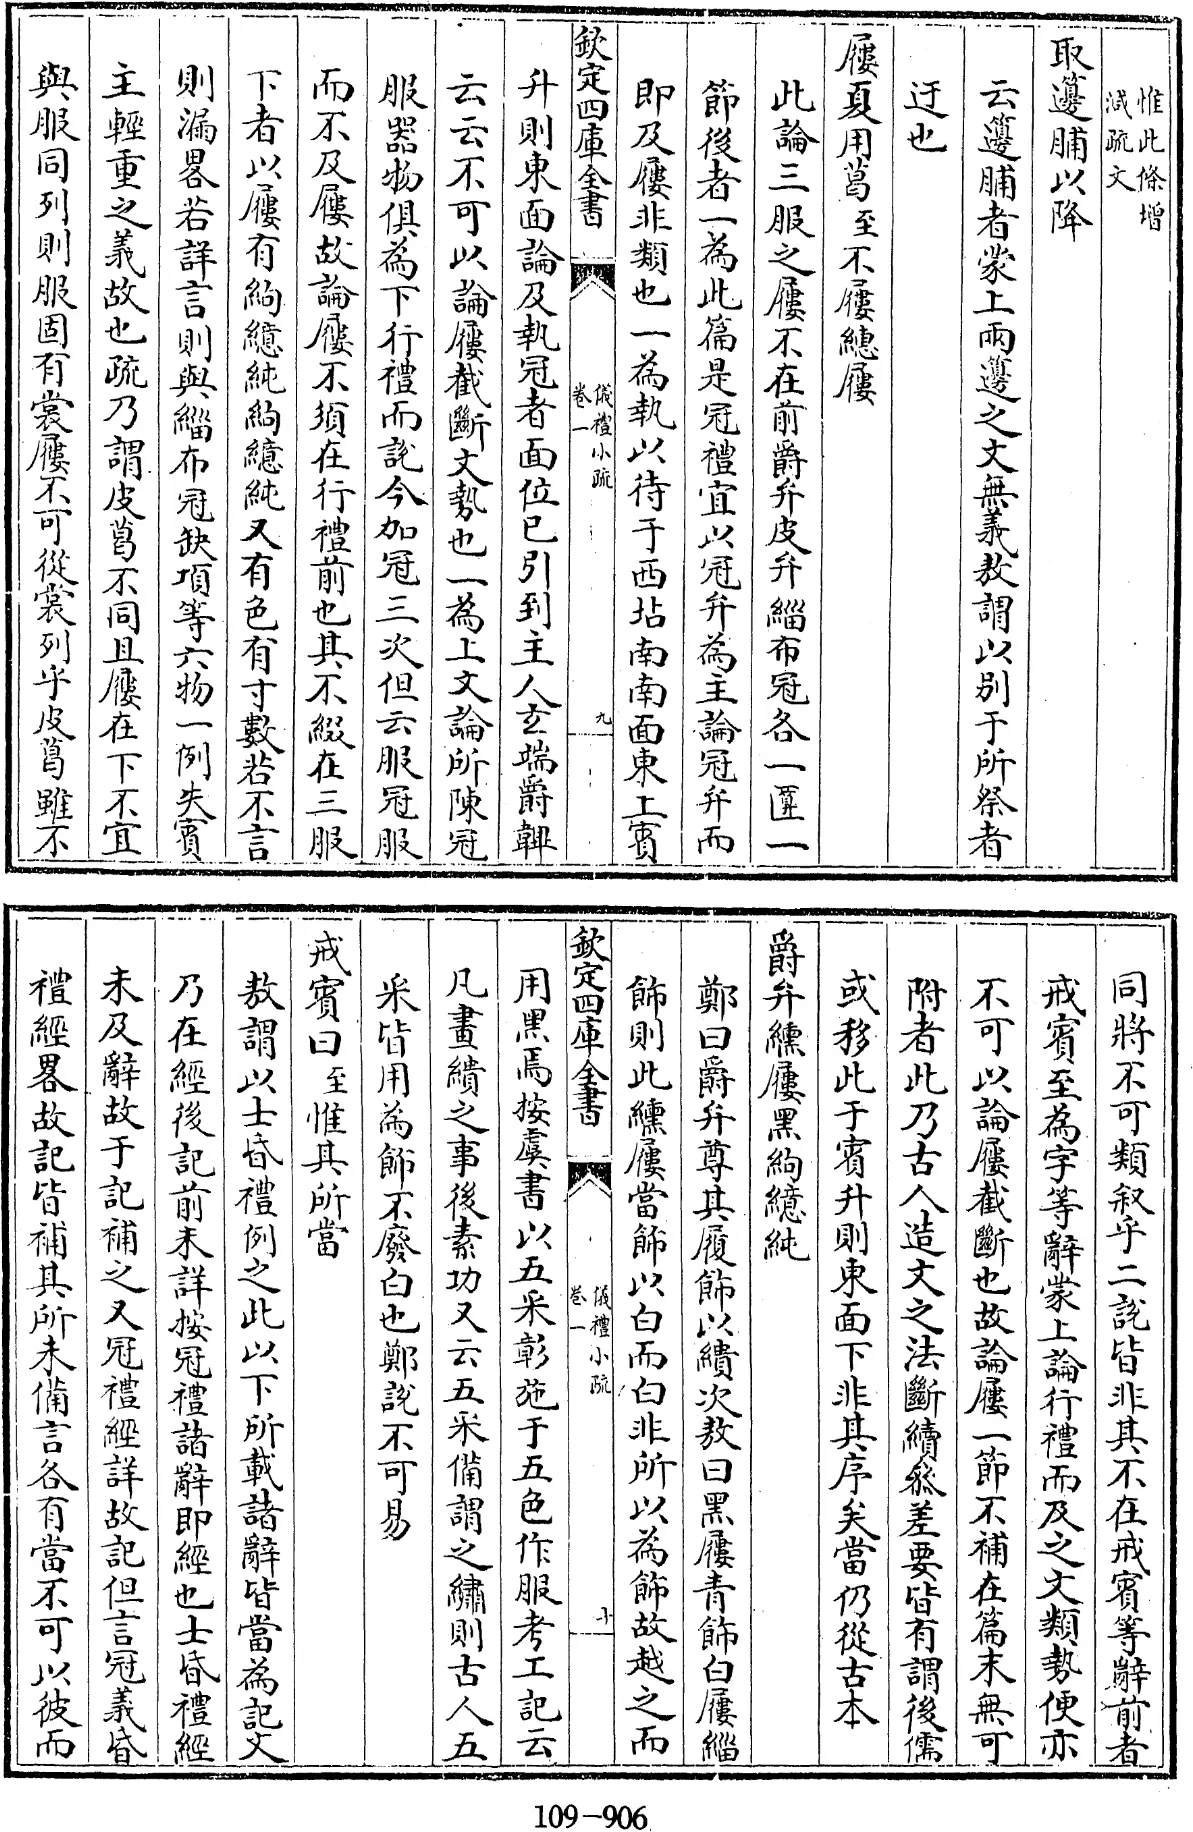 惟此條增
減疏文
取籩脯以降
云籩脯者蒙上兩籩之文無義敖謂以别于所祭者
迂也
屨夏用葛至不屨繐屨
此論三服之屨不在前爵弁皮弁緇布冠各一匴一
節後者一為此篇是冠禮宜以冠弁為主論冠弁而
即及屨非類也一為執以待于西坫南南面東上賓
欽定四庫全書
儀禮小疏
卷一
九
升則東面論及執冠者面位已引到主人玄端爵韠
云云不可以論屨截斷文勢也一為上文論所陳冠
服器物俱為下行禮而説今加冠三次但云服冠服
而不及屨故論屨不須在行禮前也其不綴在三服
下者以屨有絇繶純絇繶純又有色有寸數若不言
則漏畧若詳言則與緇布冠缺項等六物一例失賓
主輕重之義故也疏乃謂皮葛不同且屨在下不宜
與服同列則服固有裳屨不可從裳列乎皮葛雖不
同將不可類叙乎二説皆非其不在戒賓等辭前者
戒賓至為字等辭蒙上論行禮而及之文類勢便亦
不可以論屨截斷也故論屨一節不補在篇末無可
附者此乃古人造文之法斷續叅差要皆有謂後儒
或移此于賓升則東面下非其序矣當仍從古本
爵弁纁屨黑絇繶純
鄭曰爵弁尊其屨飾以繢次敖曰黑屨青飾白屨緇
飾則此纁屨當飾以白而白非所以為飾故越之而
欽定四庫全書
儀禮小疏
卷一
十
用黑焉按虞書以五采彰施于五色作服考工記云
凡畫繢之事後素功又云五采備謂之繡則古人五
采皆用為飾不廢白也鄭説不可易
戒賓曰至惟其所當
敖謂以士昏禮例之此以下所載諸辭皆當為記文
乃在經後記前未詳按冠禮諸辭即經也士昏禮經
未及辭故于記補之又冠禮經詳故記但言冠義昏
禮經畧故記皆補其所未備言各有當不可以彼而
109-906